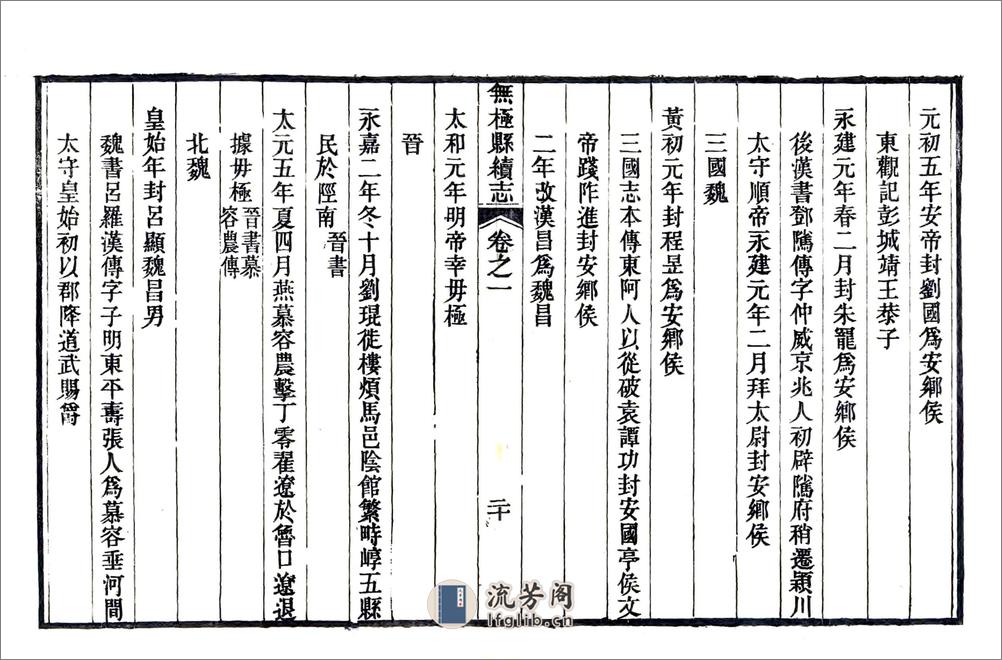 元初五年安帝封劉國爲安鄉侯
東觀記彭城靖王恭子
永建元年春二月封朱寵爲安鄉侯
後漢書鄧隲傳字仲威京兆人初辟隲府稍遷潁川
太守順帝永建元年二月拜太尉封安鄉侯
三國魏
黃初元年封程昱爲安鄉侯
三國志本傳東阿人以從破袁譚功封安國亭侯文
帝踐阼進封安鄉侯
二年改漢昌爲魏昌
無極縣續志 卷之一 二十
太和元年明帝幸毋極
晉
永嘉二年冬十月劉琨徙樓煩馬邑陰館繁畤崞五縣
民於陘南晉書
太元五年夏四月燕慕容農擊丁零翟遼於魯口遼退
據毋極晉書慕容農傳
北魏
皇始年封呂顯魏昌男
魏書呂羅漢傳字子明東平壽張人爲慕容垂河間
太守皇始初以郡降道武賜爵
流芳阁
lfglib.cn